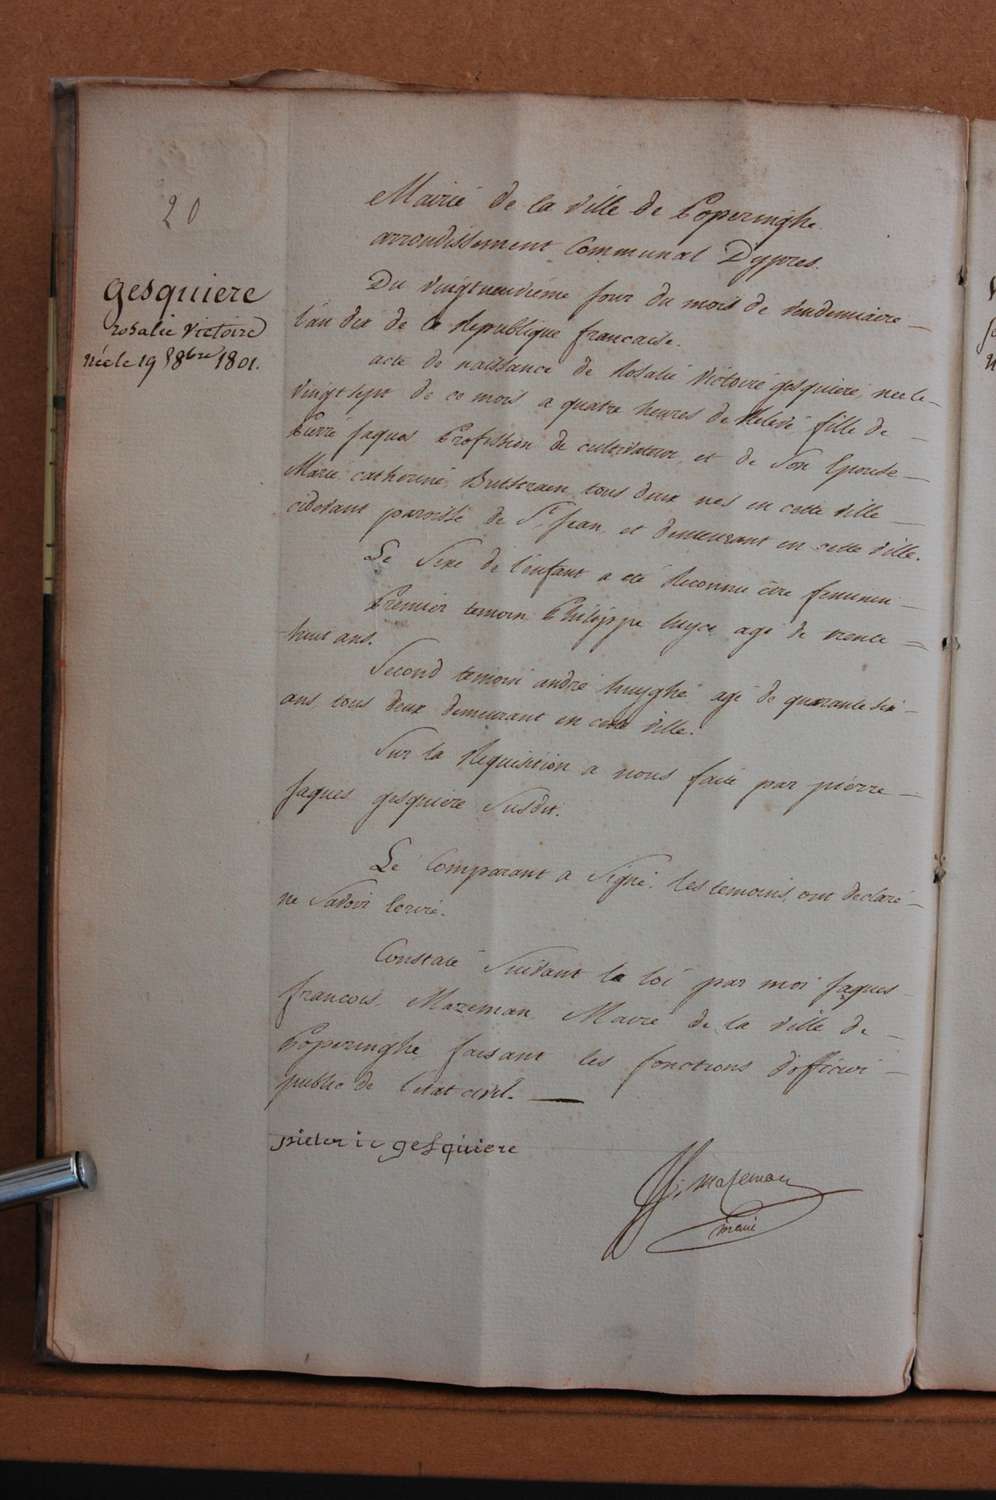 20
gesquiere
rosalie victoire
née le 19 8bre 1801.
Mairie de la ville de Poperinghe
arrondissement Communal Dypres.
Du vingtneuvieme jour du mois de vendemiaire
l'an dix de la Republique francaise.
acte de naissance de Rosalie Victoire gesquiere, nee le
vingt sept de ce mois a quatre heures de Relevé fille de
Pierre Jaques Profession de cultivateur, et de Son Epouse
Marie catherine tous deux nes en cette ville
cidevant paroisse de St. Jean, et demeurant en cette ville.
Le Sexe de l'enfant a eté Reconnu être feminin
Premier temoin Philippe agé de trente
huit ans.
Second temoin andré huyghe agé de quarante six
ans tous deux demeurant en cette ville.
Sur la Requisition a nous faite par pierre
Jaques gesquiere Susdit.
Le Comparant a Signé, les temoins ont declaré
ne Savoir Ecrire.
Constaté Suivant la loi par moi Jaques
francois Mazeman Maire de la ville de
Poperinghe faisant les fonctions d'officier
public de l'etat civil.
pieter i c gesquiere
Mazeman
maire